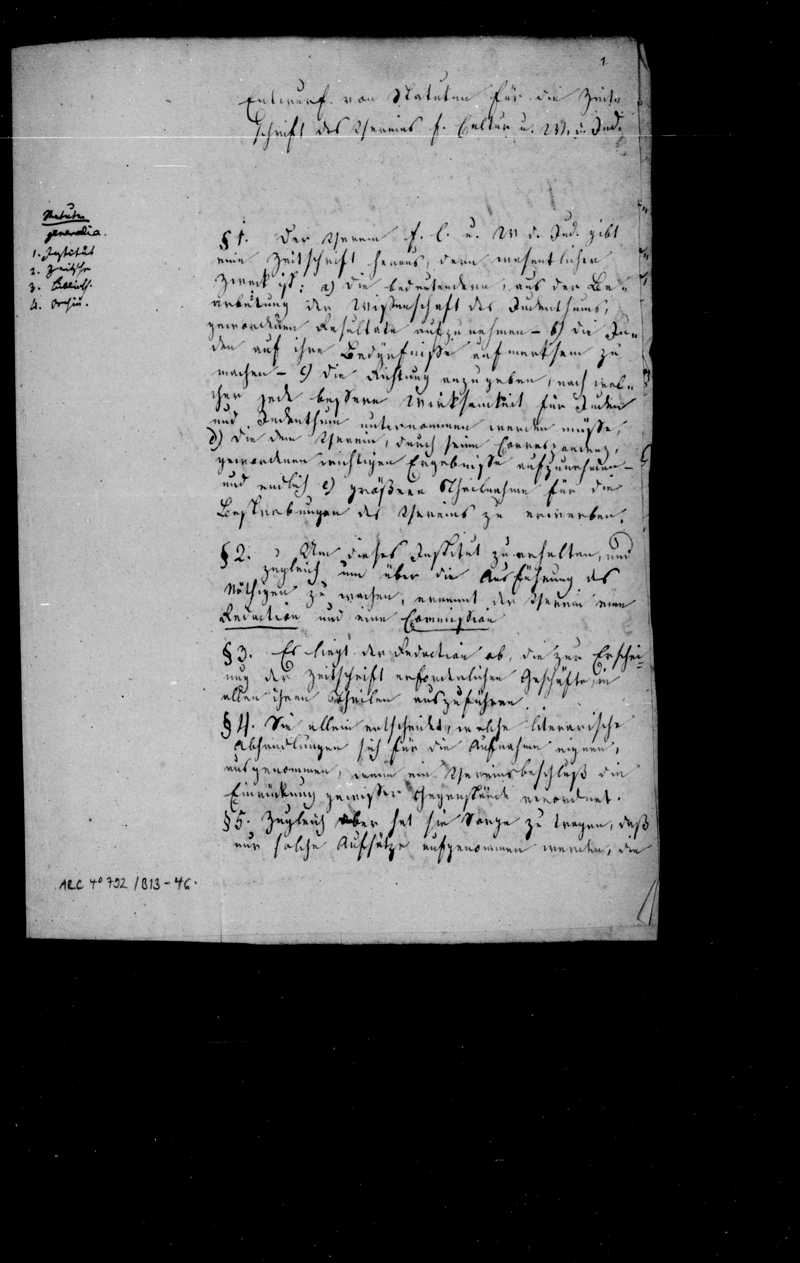 1
Entwurf von Statuten für die Zeit-
schrift des Vereins f. Cultur u. W. d. Jud.
Statuta
generalia.
1. Institut
2. Zeitschr
3. Biblioth.
4. Archiv.
§ 1. Der Verein f. C. u. W d. Jud. gibt
eine Zeitschrift heraus, deren wesentlicher
Zweck ist: a) die bedeutendern, aus der Be-
arbeitung der Wissenschaft des Judenthums,
gewordenen Resultate aufzunehmen – b) die Ju-
den auf ihre Bedürfnisse aufmerksam zu
machen – c) die Richtung anzugeben, nach wel-
cher jede bessere Wirksamkeit für Juden
und Judenthum unternommen werden müsse,
d) die dem Verein, durch seine Correspondenz,
gewordenen wichtigen Ergebnisse aufzunehmen –
und endlich e) größere Theilnahme für die
Bestrebungen des Vereins zu erwerben.
§ 2. Um dieses Institut zu erhalten, und
zugleich um über die Ausführung des
Nöthigen zu wachen, ernennt der Verein eine
Redaction und eine Commission
§ 3. Es liegt der Redaction ob, die zur Erschei-
nung der Zeitschrift erforderlichen Geschäfte, in
allen ihren Theilen auszuführen.
§ 4. Sie allein entscheidet, welche literarische
Abhandlungen sich für die Aufnahme eignen,
ausgenommen, wenn ein Vereinsbeschluß die
Einrückung gewisser Gegenstände verordnet.
§ 5. Zugleich aber hat sie Sorge zu tragen, daß
nur solche Aufsätze aufgenommen werden, die
ARC 4° 792 / B13 - 46.